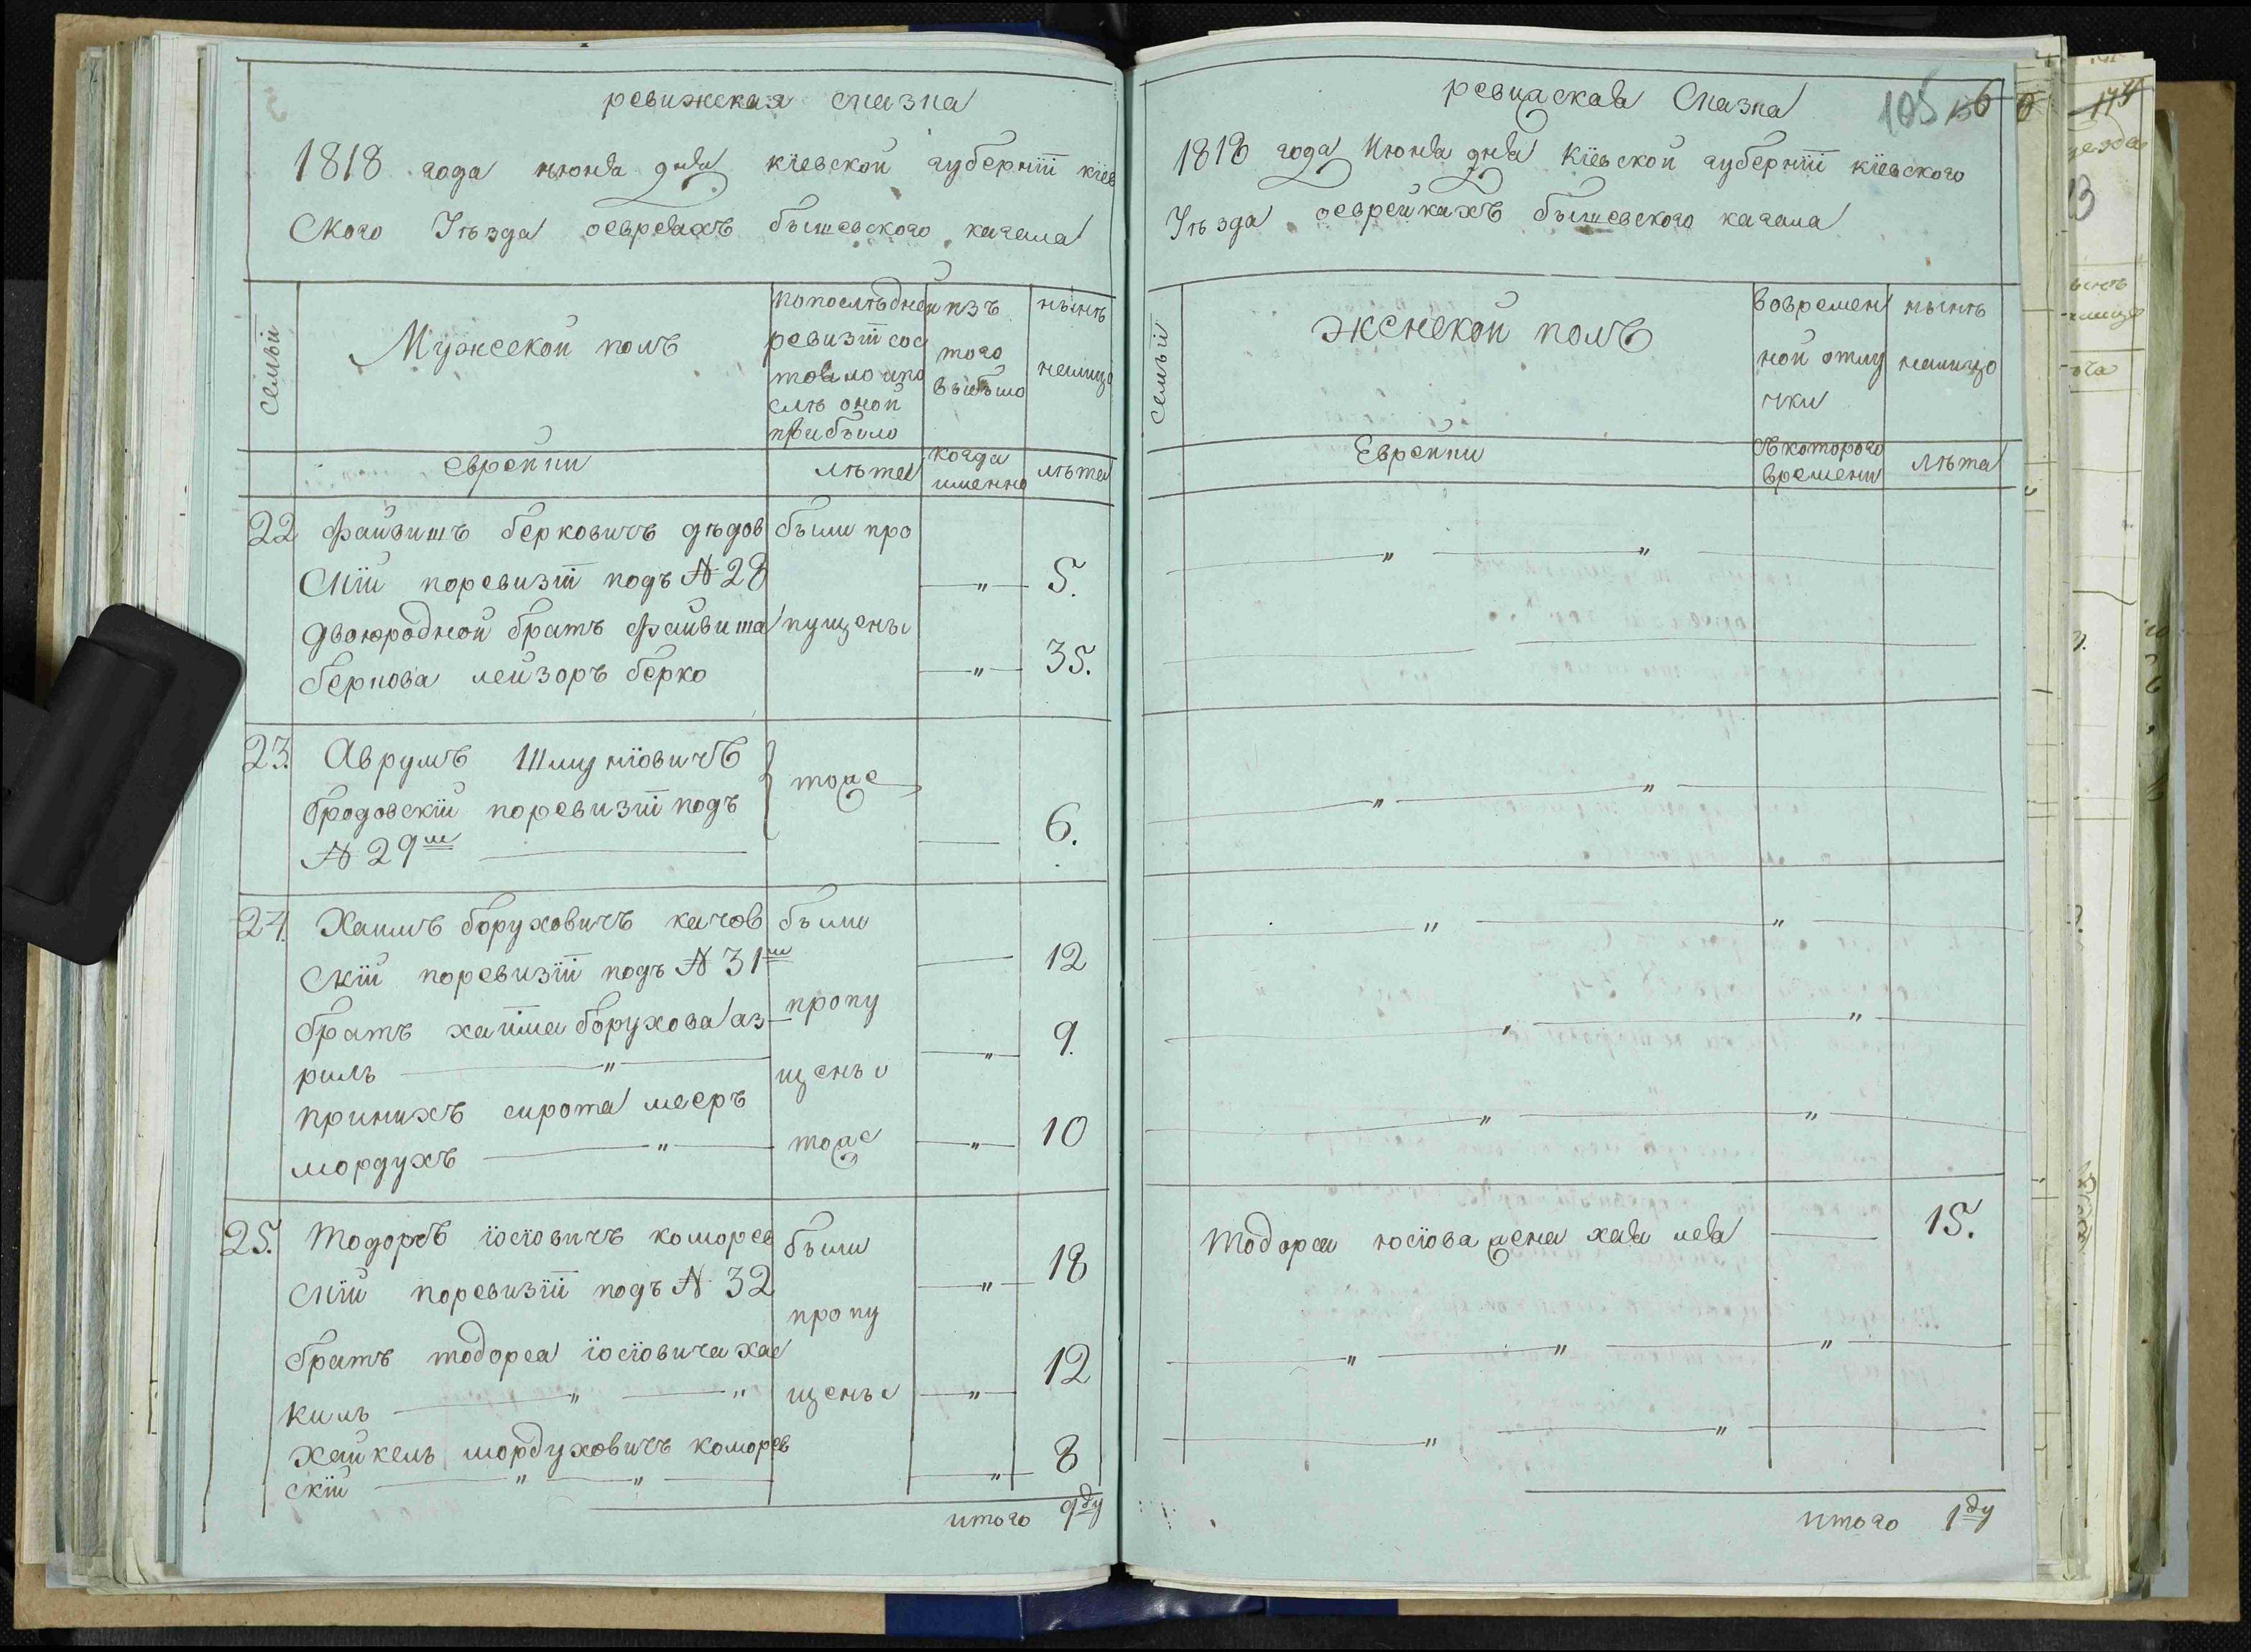 ревижская сказка
1818 года июня дня кіевской губерніи кіев
ского уѣзда оевреяхъ бышевского кагала
семьи
Мужеской полъ
попослѣдней ревизіи сос тояло ипо слѣ оной прибыло
изъ того выбыло
нынѣ налицо
евреини
лѣта
когда именно
лѣта
22 Файвишъ берковичъ дѣдов были про
скій поревизіи подъ № 28 — " — 5.
двоюродной братъ Файвиша пущены
беркова лейзоръ берко — " — 35.
23. Аврумъ Шмуліовичъ тоже
бродовскій поревизіи подъ
№ 29м — 6.
24. Хаимъ боруховичъ качов были
скій поревизіи подъ № 31м — 12
братъ хаіма борухова аз пропу
риль — " — щены — " — 9.
принихъ сирота мееръ
мордухъ — " — тоже — " — 10
25. Тодоръ іосіовичъ коморов были
скій поревизіи подъ № 32 — " — 18
пропу
братъ тодора іосіовича хас
киль — " — " щены — " — 12
хайкель мордуховичъ коморов
скій — " — " — " — 8
итого 9ду
ревижская Сказка
105 136
1818 года Июня дня Кіевской губерніи кіевского
Уѣзда оеврейкахъ бышевского кагала
семьи
женской полъ
вовремен ной отлу чки
нынѣ налицо
Евреики
Съкоторого времени
Лѣта
Тодора юсіова жена хая лея — 15.
итого 1ду